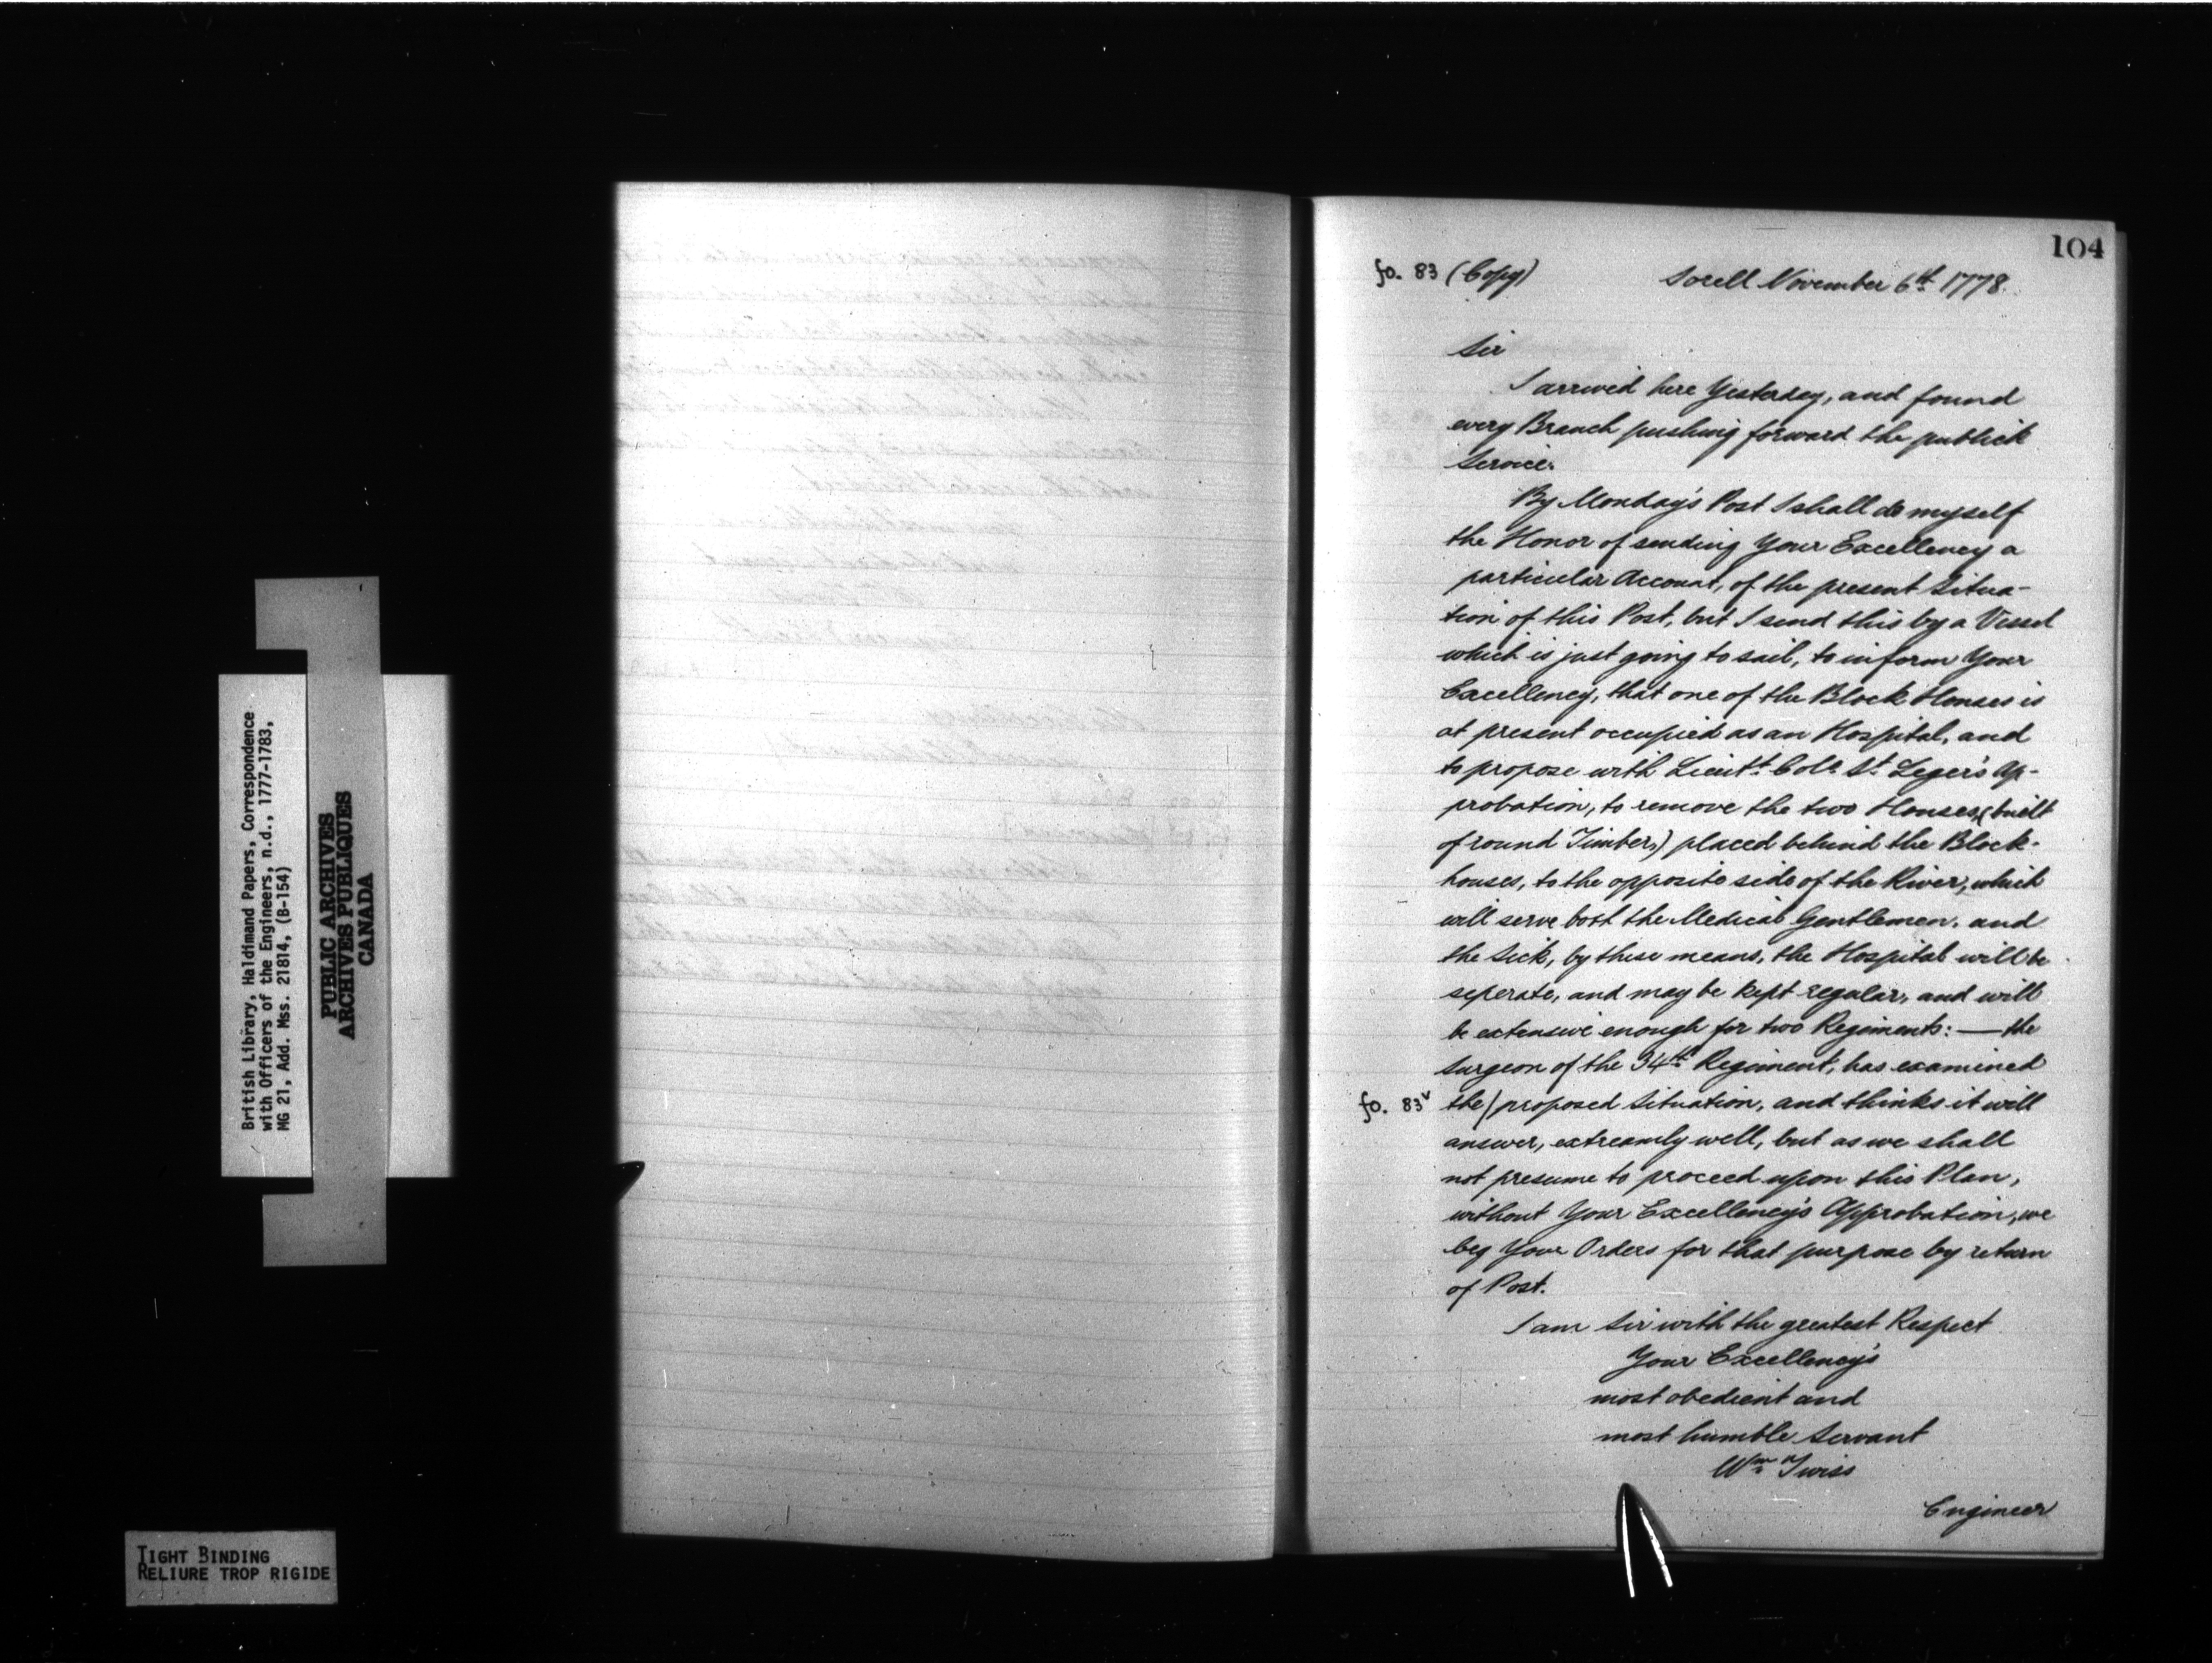 British Library, Haldimand Papers, Correspondence
with Officers of the Engineers, n.d., 1777-1783,
MG 21, Add. Mss. 21814, (B-154)
PUBLIC ARCHIVES
ARCHIVES PUBLIQUES
CANADA
TIGHT BINDING
RELIURE TROP RIGIDE
104
fo. 83 (Copy) Sorell November 6th 1778.
Sir
I arrived here Yesterday, and found
every Branch pushing forward the publick
Service.
By Monday's Post I shall do myself
the Honor of sending Your Excellency a
particular Account, of the present Situa-
tion of this Post, but I send this by a Vessel
which is just going to sail, to inform Your
Excellency, that one of the Block Houses is
at present occupied as an Hospital, and
to propose with Lieutt. Coll. St. Leger's Ap-
probation, to remove the two Houses, (built
of round Timber,) placed behind the Block-
houses, to the opposite side of the River, which
will serve both the Medical Gentlemen, and
the Sick, by these means, the Hospital will be
seperate, and may be kept regular, and will
be extensive enough for two Regiments: — the
Surgeon of the 34th Regiment, has examined
fo. 83v the/proposed Situation, and thinks it will
answer, extreamly well, but as we shall
not presume to proceed upon this Plan,
without Your Excellency's Approbation, we
beg Your Orders for that purpose by return
of Post.
I am Sir with the greatest Respect
Your Excellency's
most obedient and
most humble Servant
Wm. Twiss
Engineer